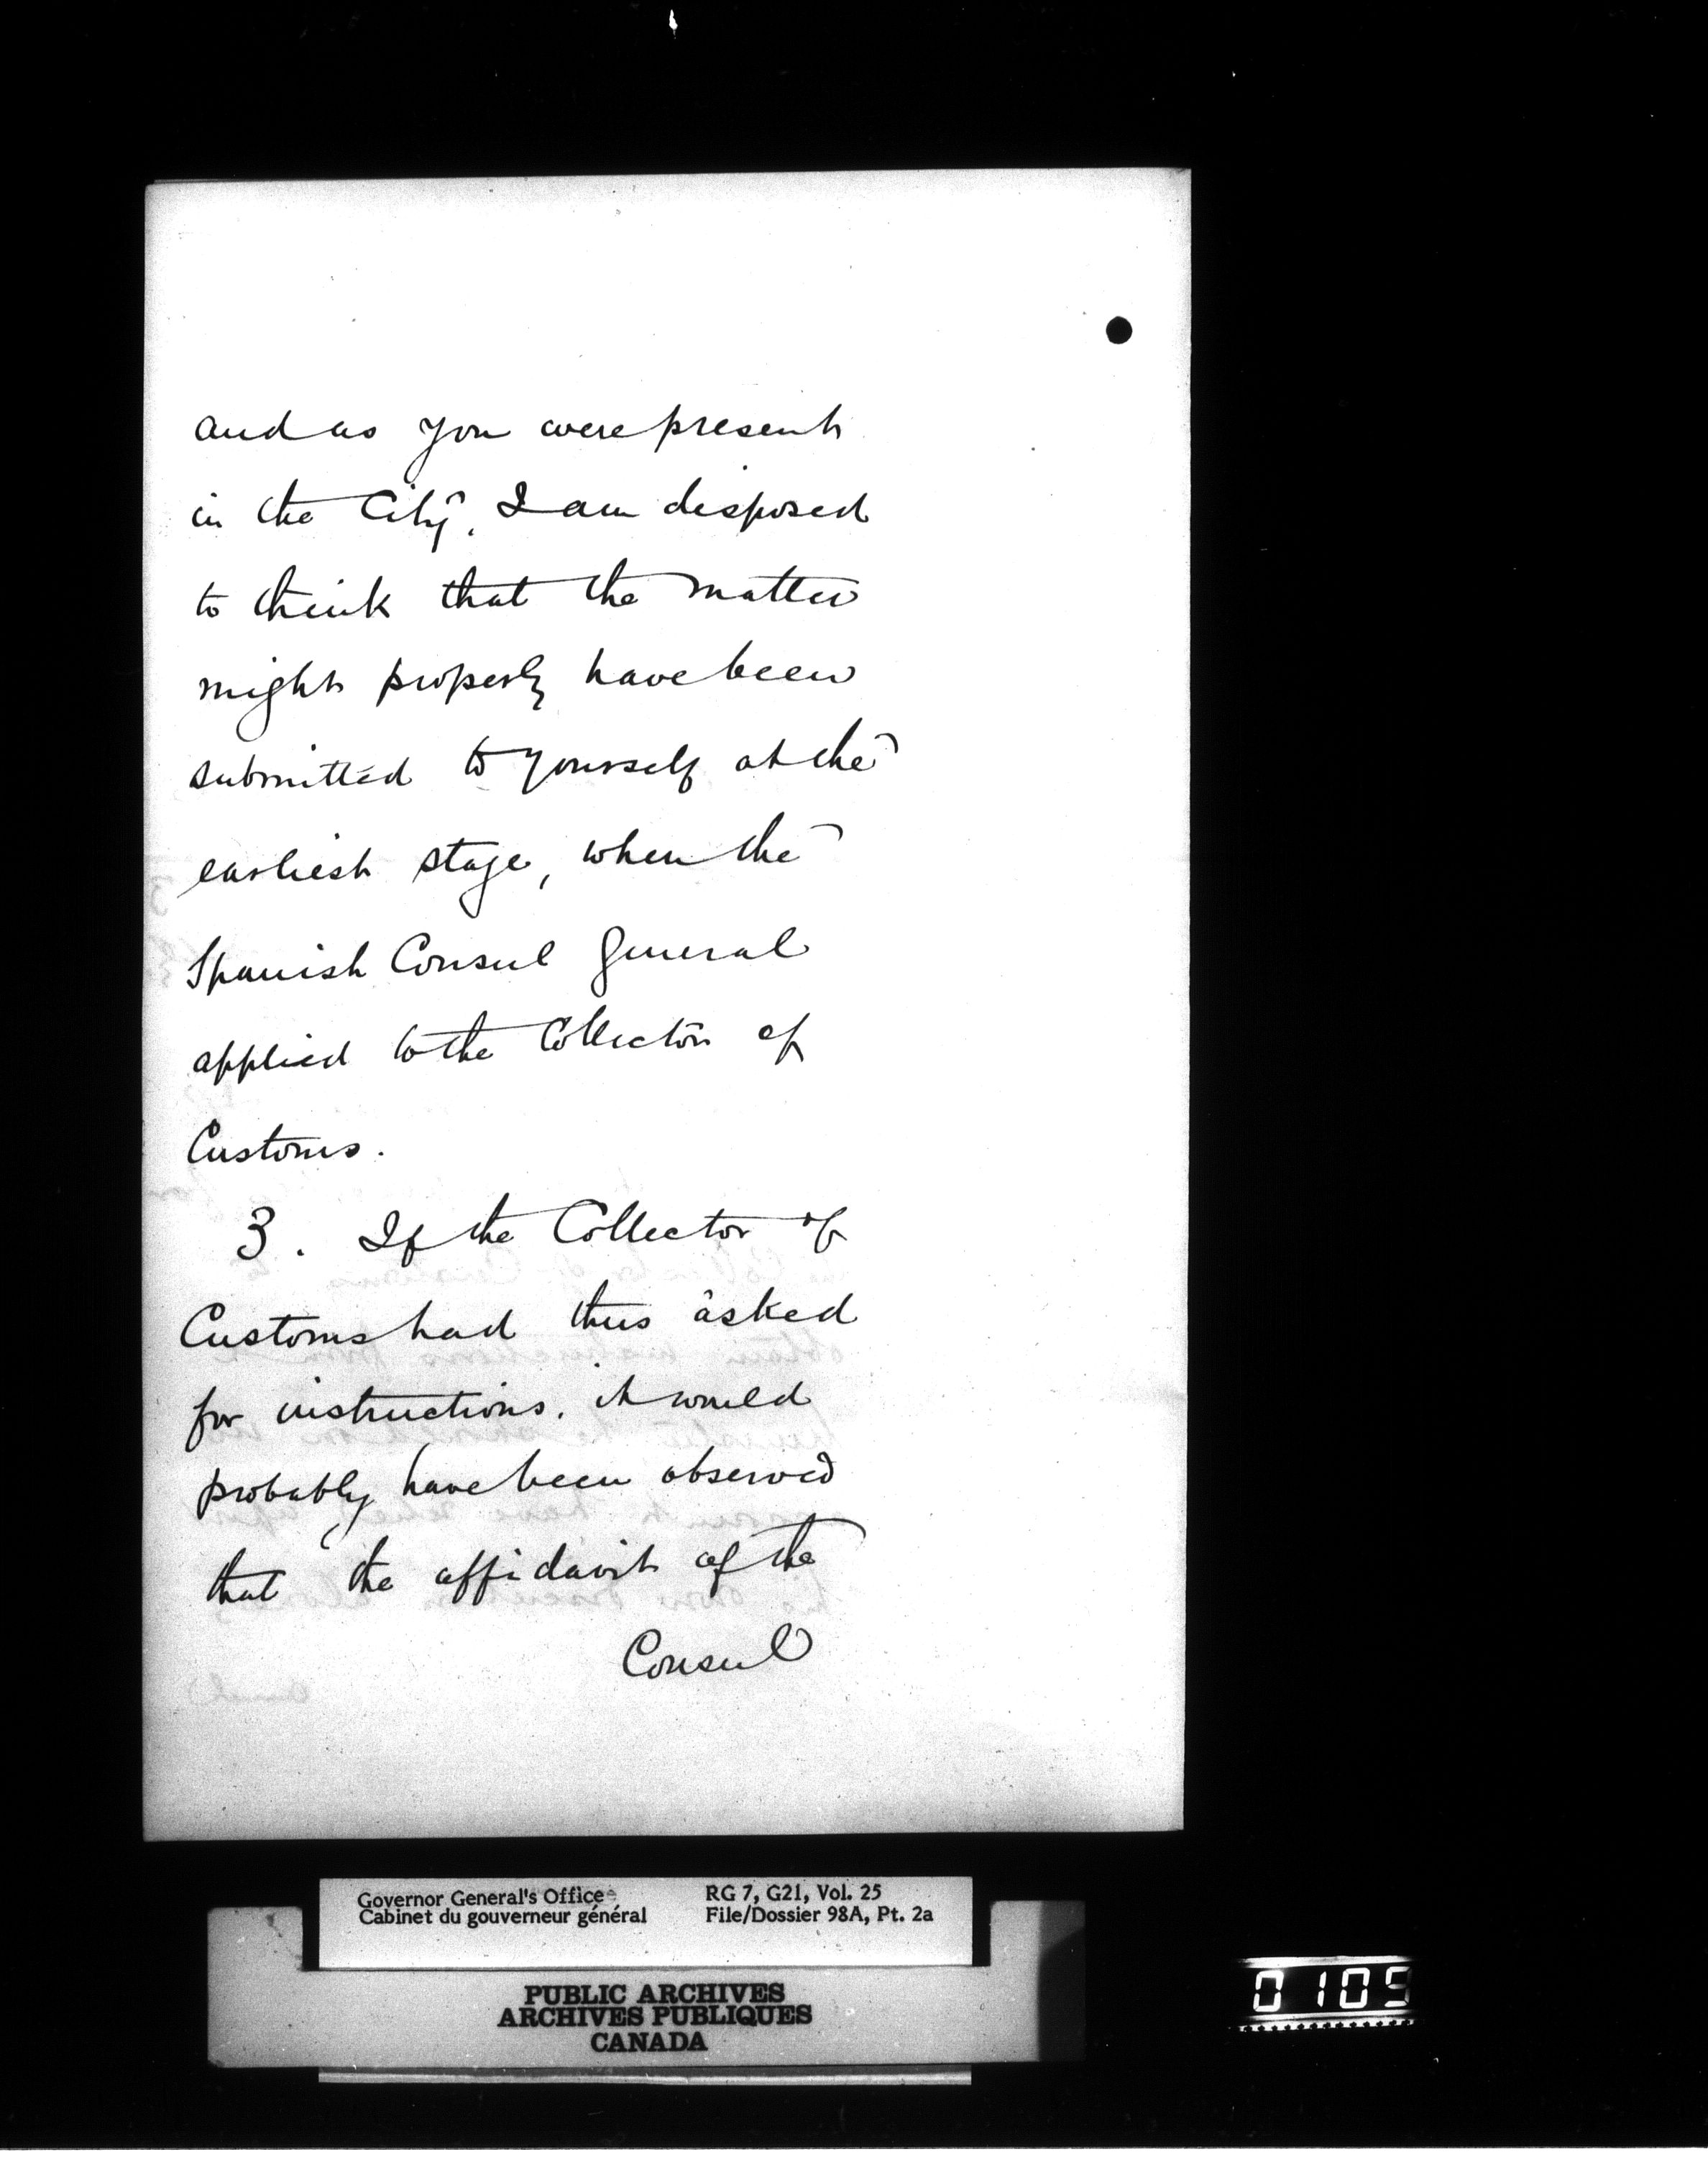 and as you were present
in the City, I am disposed
to think that the matter
might properly have been
submitted to yourself at the
earliest stage, when the
Spanish Consul General
applied to the Collector of
Customs.
3. If the Collector of
Customs had thus asked
for instructions, it would
probably have been observed
that the affidavit of the
Consul
Governor General's Office
Cabinet du gouverneur général
RG 7, G21, Vol. 25
File/Dossier 98A, Pt. 2a
PUBLIC ARCHIVES
ARCHIVES PUBLIQUES
CANADA
0105